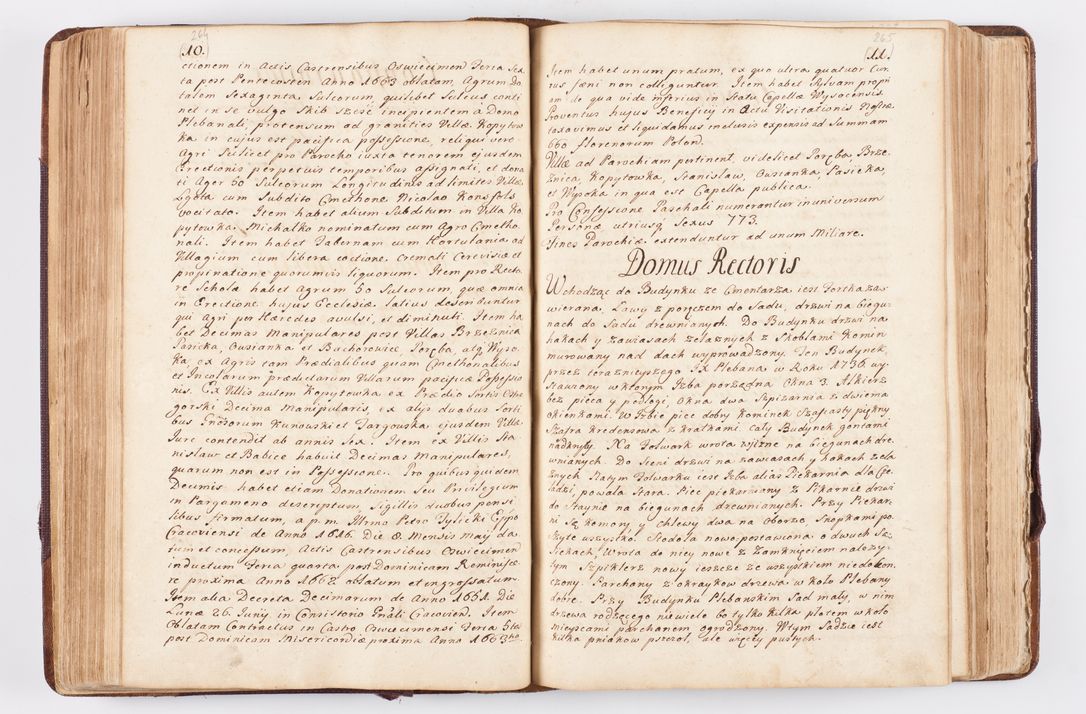 264
(10.)
ctionem in Actis Castrensibus Oswiecimen Feria Sex
ta post Pentecosten Anno 1663 oblatam, Agrum Do
talem Sexaginta Sulcorum, quilibet Sulcus conti
net in se vulgo Skib sześć incipientem a Domo
Plebanali, protensum ad granities Villæ Kopytow
ka in cujus est pacifica possessione, reliqui vero
Agri Scilicet pro Parocho iuxta tenorem ejusdem
Erectionis perpetuis temporibus assignati, et dona
ti Ager 50 Sulcorum Longitudinis ad limites Villæ
Lgota cum Subdito Cmethone Nicolao
vocitato. Item habet alium Subditum in Villa Ko
pytowka Michalko nominatum cum Agro Cmetho
nali. Item habet Tabernam cum Hortulania ad
Villagium cum libera coctione Cremati Cerevisiæ et
propinatione quorumvis liquorum. Item pro Recto
re Scholæ habet Agrum 50 Sulcorum, quæ omnia
in Erectione hujus Ecclesiæ latius describuntur
qui Agri per Hæredes avulsi, et diminuti. Item ha
bet Decimas Manipulares post Villas Brzeznica
Pasieka, Ousianka et Bachorowice Poręba, atq Wyso
ka ex Agris tam Prædialibus quam Cmethonalibus
et Incolarum prædictarum Villarum pacificæ Possessio
nis. Ex Villis autem Kopytowka ex Prædio Sortis Ostro
gorski Decima Manipularis, ex alys duabus Sorti
bus Gnosorum Kunowski et Targowska ejusdem Villæ
Jure contendit ab annis Sex. Item ex Villis Sta
nislaw et Babice habuit Decimas Manipulares,
quarum non est in Possessione. Pro quibus quidem
Decimis habet etiam Donationem Seu Privilegium
in Pargameno descriptum, Sigillis duabus pensi
libus firmatum, a p. m. Illmo Petro Tylicki Eppo
Cracoviensi de Anno 1616. Die 8 Mensis May da
tum et concessum, Actis Castrensibus Oswiecimen
inductum Feria quarta post Dominicam Reminisce
re proxima Anno 1662 oblatum et ingrossatum.
Item alia Decreta Decimarum de Anno 1661. Die
Lunæ 26 Juny in Consistorio Gnali Cracovien. Item
Oblatam Contractus in Castro Oswiecimensi Feria 5ta
post Dominicam Misericordiæ proxima Anno 1663tio.
265
(11.)
Item habet unum pratum, ex quo ultra quatuor Cur
rus fæni non colliguntur. Item habet Sylvam propri
am de qua vide inferius in Statu Capellæ Wysocensis
Proventus hujus Beneficy in Actu Visitationis Nostræ
taxavimus et liquidamus inclusis expensis ad Summam
660 Florenorum Polon.
Villæ ad Parochiam pertinent, videlicet Poręba, Brze
znica, Kopytowka, Stanislaw, Ousianka, Pasieka,
et Wysoka in qua est Capella publica.
Pro Confessione Paschali numerantur in universum
Personæ utriusq Sexus 773.
Fines Parochiæ extenduntur ad unum Miliare.
Domus Rectoris
Wchodząc do Budynku ze Cmentarza iest Fortka zaw
wierana, Lawy z poręczem do Sadu, drzwi na biegu-
nach do Sadu drewnianych. Do Budynku drzwi na
hakach y zawiasach zelaznych z Skoblami Komin
murowany nad dach wyprowadzony. Ten Budynek
przez teraznieyszego IX Plebana w Roku 1736. wy
stawiony w ktorym Izba porządna Okna 3. Alkierz
bez pieca y podlogi, Okna dwa Spizarnia z dwiema
okienkami. W Izbie piec dobry kominek Szafiasty piękny
Szafa kredensowa z kratkami. caly Budynek gontami
nadkryty. Na Folwark wrota zyżne na biegunach dre
wnianych. Do Sieni drzwi na zawiasach y hakach zela
znych Natym Folwarku iest Izba alias Piekarnia dla Cze
ladzi, powala Stara. Piec piekarniany z Pikarnie drzwi
do Staynie na biegunach drzewnianych. Przy Piekar
ni Są komory y chlewy dwa na Oborze, Snopkami po
szyte wszystko. Stodola nowo postawiona o dwuch Są
siekach Wrota do niey nowe z Zamknięciem należy
tym Szpiklerz nowy ieszcze ze wszystkiem niedokon
czony. Parchany z okraykow drzewa w kolo Plebany
dobre. Przy Budynku Plebanskim Sad maly, w nim
drzewa rodzącego niewiele bo tylko kilka platem w kolo
mieyscami parchanem ogrodzony. W tym Sadzie iest
kilka pniakow pszczol, ale więcey pustych.